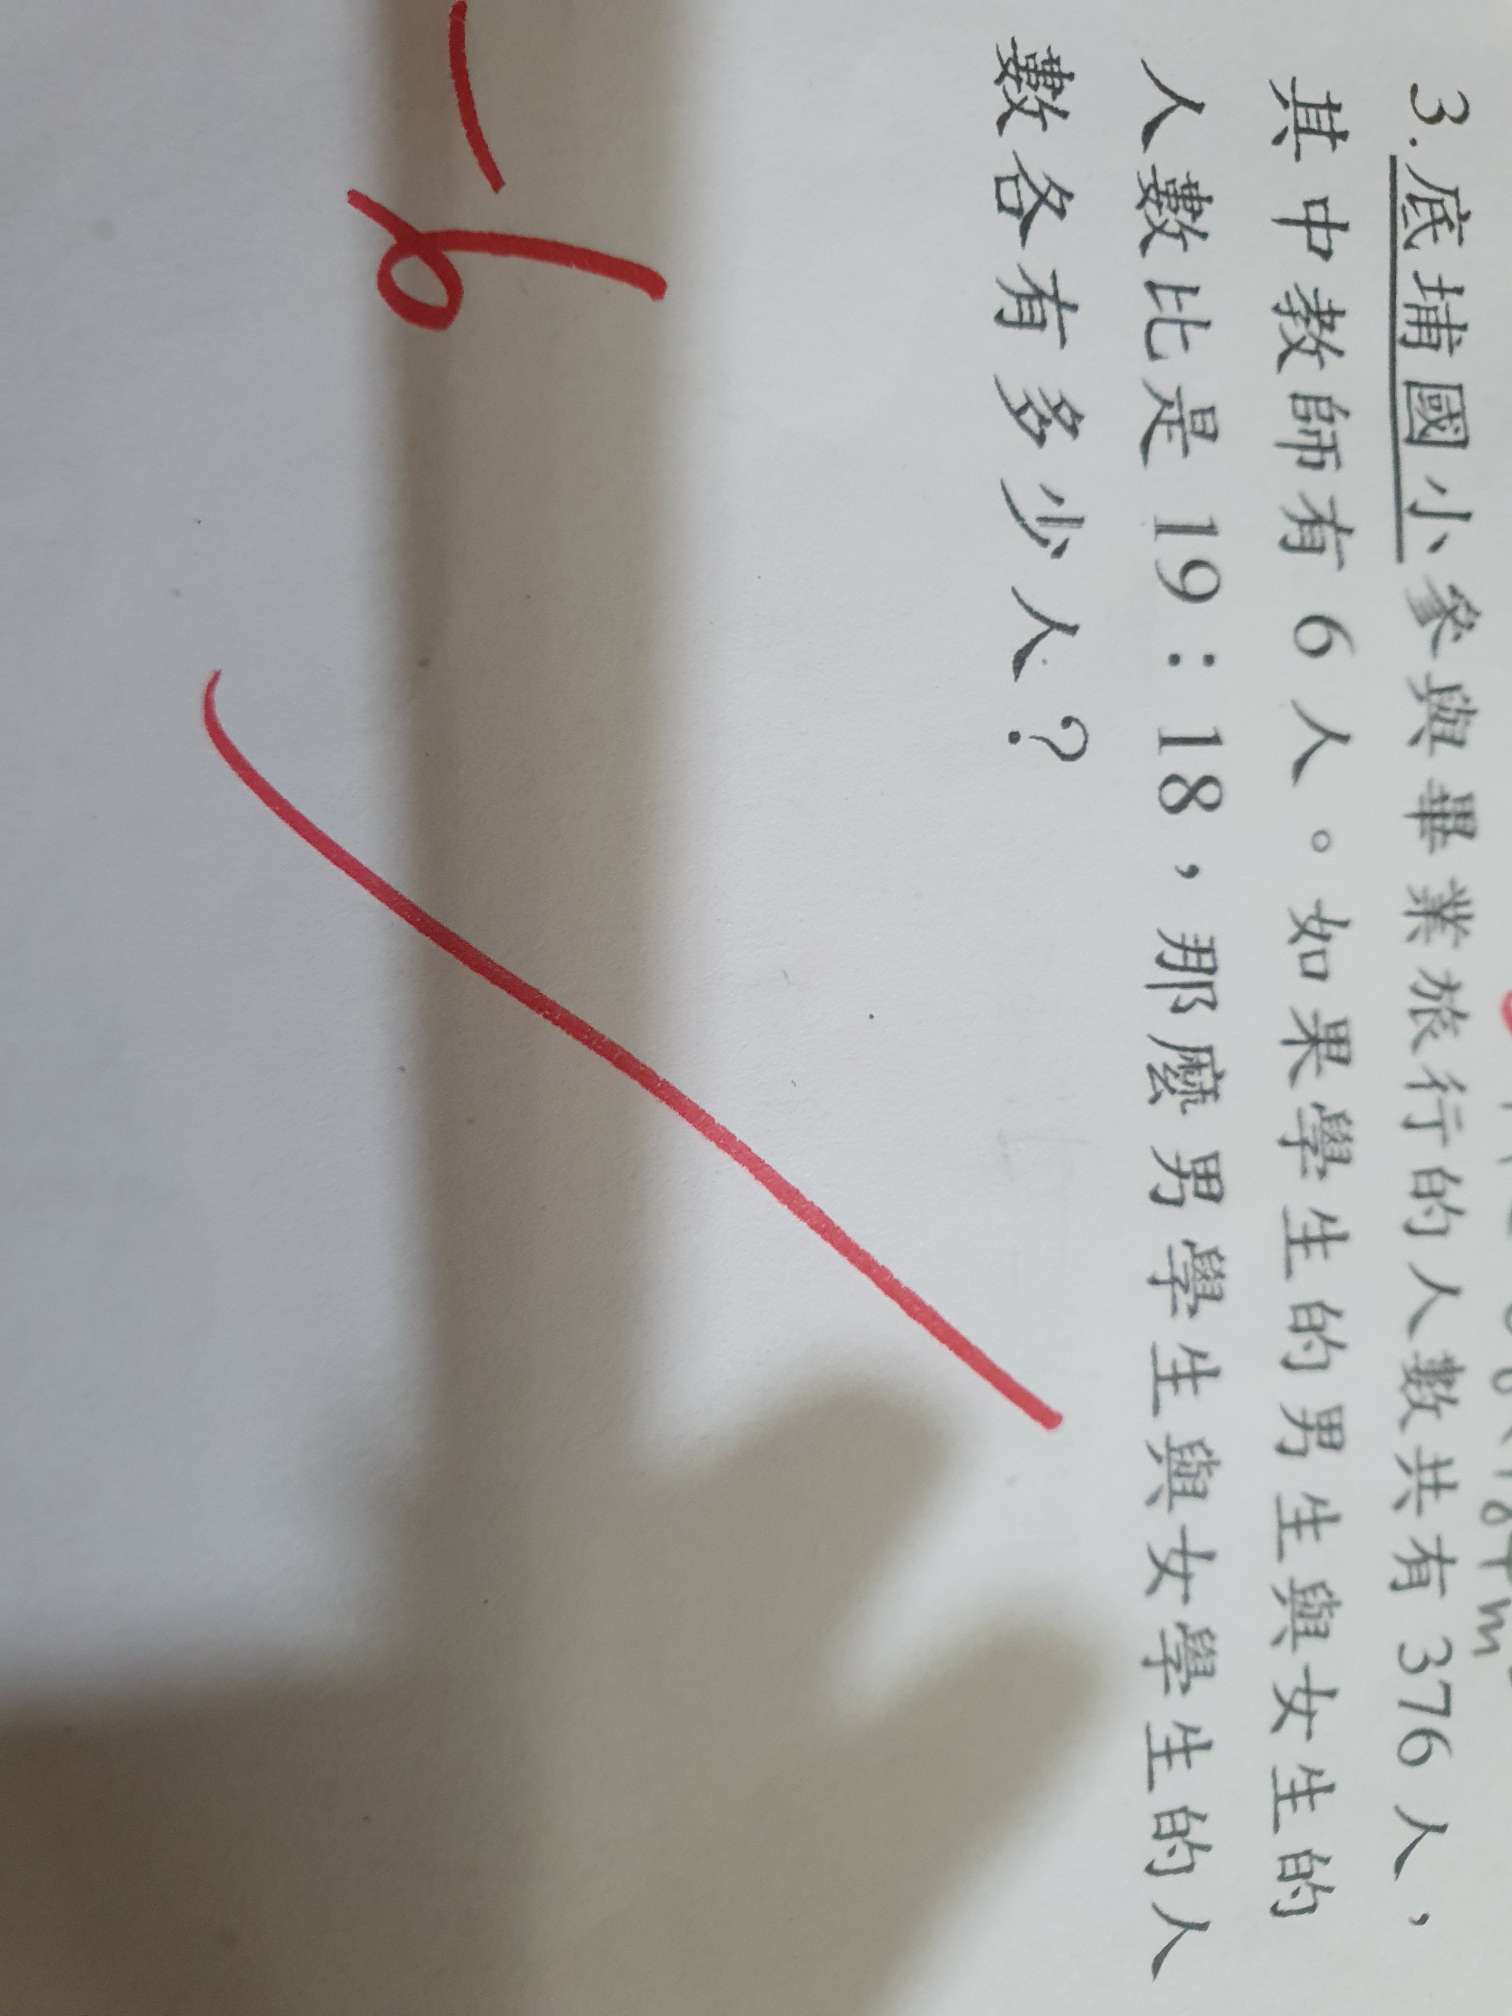 3.底埔國小參與畢業旅行的人數共有 376 人，
其中教師有 6 人。如果學生的男生與女生的
人數比是 19：18，那麼男學生與女學生的人
數各有多少人？
-6